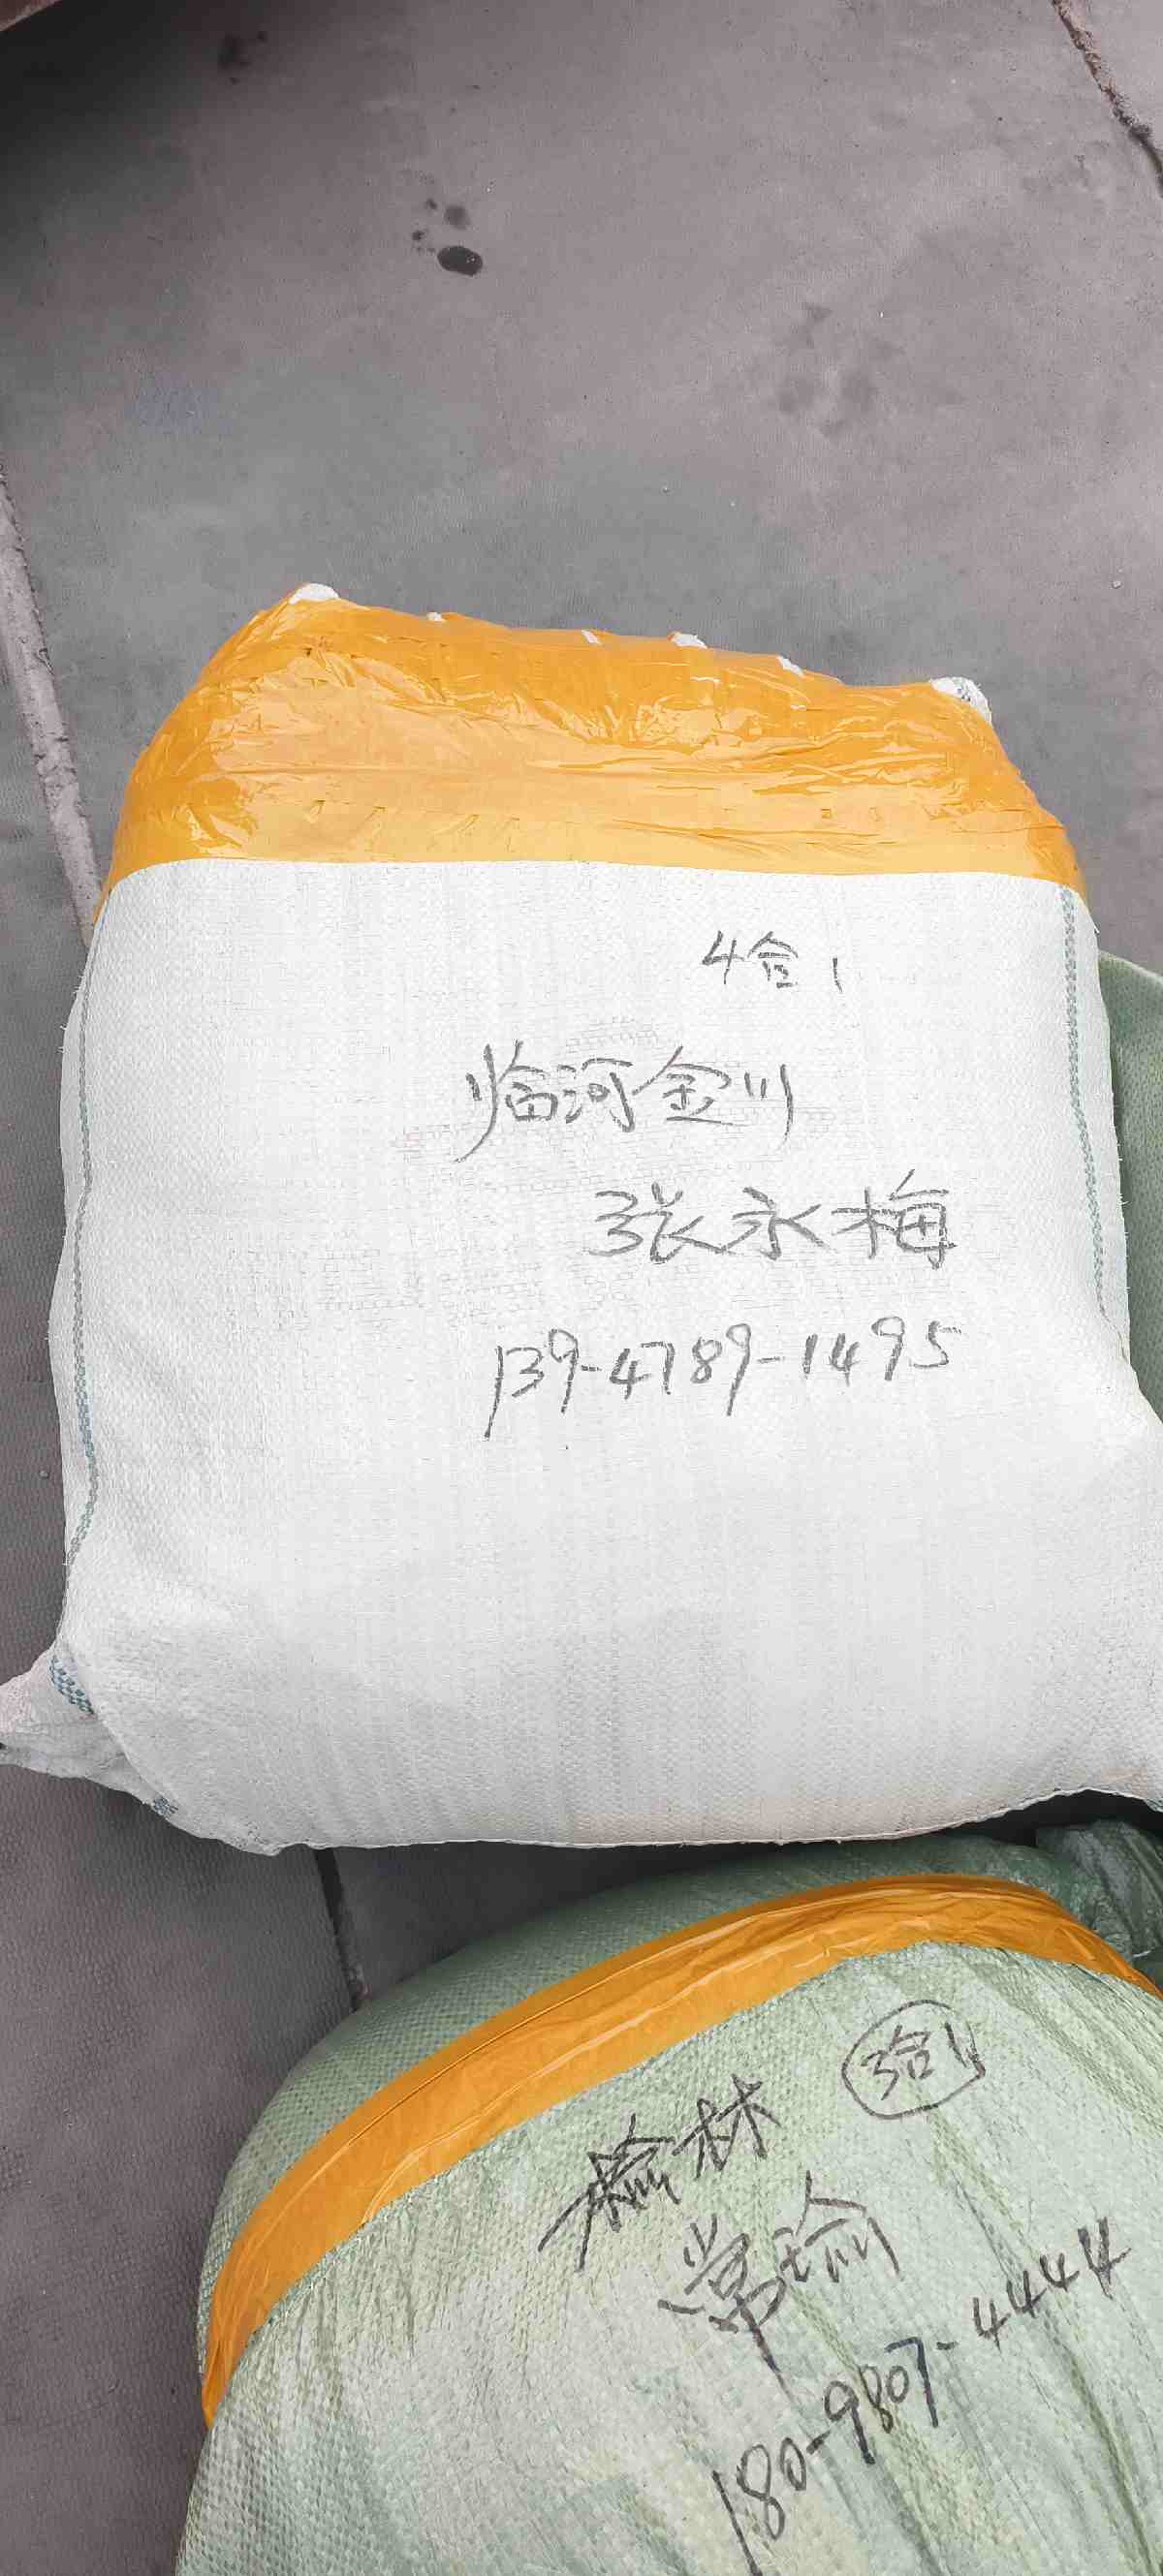 4合1
临河金川
张永梅
139-4789-1495
3合1
榆林
常瑜
180-9807-4444